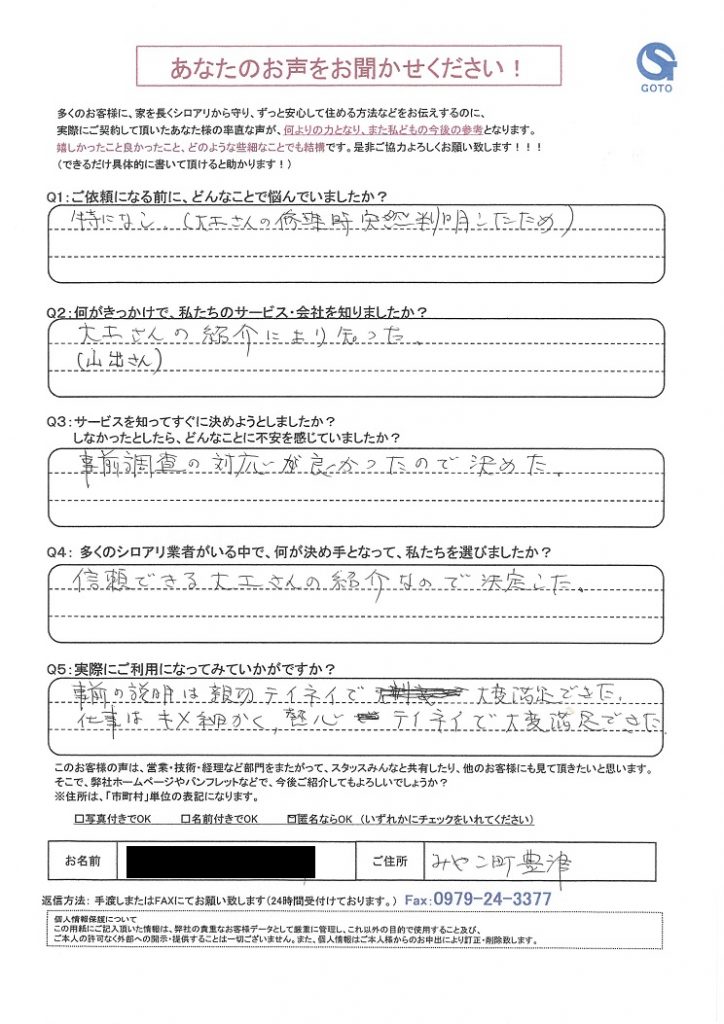 あなたのお声をお聞かせください！
GOTO
多くのお客様に、家を長くシロアリから守り、ずっと安心して住める方法などをお伝えするのに、
実際にご契約して頂いたあなた様の率直な声が、何よりの力となり、また私どもの今後の参考となります。
嬉しかったこと良かったこと、どのような些細なことでも結構です。是非ご協力よろしくお願い致します！！！
（できるだけ具体的に書いて頂けると助かります！）
Q1：ご依頼になる前に、どんなことで悩んでいましたか？
特になし。（大工さんの修理時突然判明したため）
Q2：何がきっかけで、私たちのサービス・会社を知りましたか？
大工さんの紹介により知った。
（山出さん）
Q3：サービスを知ってすぐに決めようとしましたか？
しなかったとしたら、どんなことに不安を感じていましたか？
事前調査の対応が良かったので決めた。
Q4： 多くのシロアリ業者がいる中で、何が決め手となって、私たちを選びましたか？
信頼できる大工さんの紹介なので決定した。
Q5：実際にご利用になってみていかがですか？
事前の説明は親切テイネイで 大変満足できた。
仕事はキメ細かく、 テイネイで大変満足できた
このお客様の声は、営業・技術・経理など部門をまたがって、スタッスみんなと共有したり、他のお客様にも見て頂きたいと思います。
そこで、弊社ホームページやパンフレットなどで、今後ご紹介してもよろしいでしょうか？
※住所は、「市町村」単位の表記になります。
□写真付きでOK □名前付きでOK ☑匿名ならOK （いずれかにチェックをいれてください）
お名前 ご住所 みやこ町豊津
返信方法： 手渡しまたはFAXにてお願い致します（24時間受付けております。） Fax：0979-24-3377
個人情報保護について
この用紙にご記入頂いた情報は、弊社の貴重なお客様データとして厳重に管理し、これ以外の目的で使用すること及び、
ご本人の許可なく外部への開示・提供することは一切ございません。また、個人情報はご本人様からのお申出により訂正・削除致します。